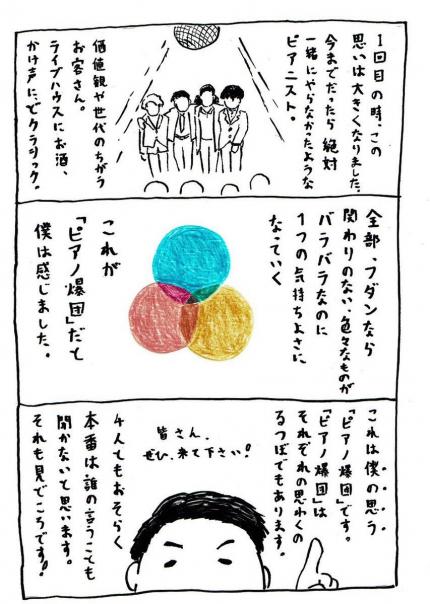 1回目の時、この
思いは大きくなりました。
今までだったら絶対
一緒にやらなかったような
ピアニスト。
価値観や世代のちがう
お客さん。
ライブハウスにお酒、
かけ声にでクラシック。
全部、フダンなら
関わりのない、色々なものが
バラバラなのに
1つの気持ちよさに
なっていく
これが
「ピアノ爆団」だと
僕は感じました。
これは僕の思う
「ピアノ爆団」です。
「ピアノ爆団」は
それぞれの思わくの
るつぼでもあります。
皆さん、
ぜひ、来て下さい!
4人ともおそらく
本番は誰の言うことも
聞かないと思います。
それも見どころです!